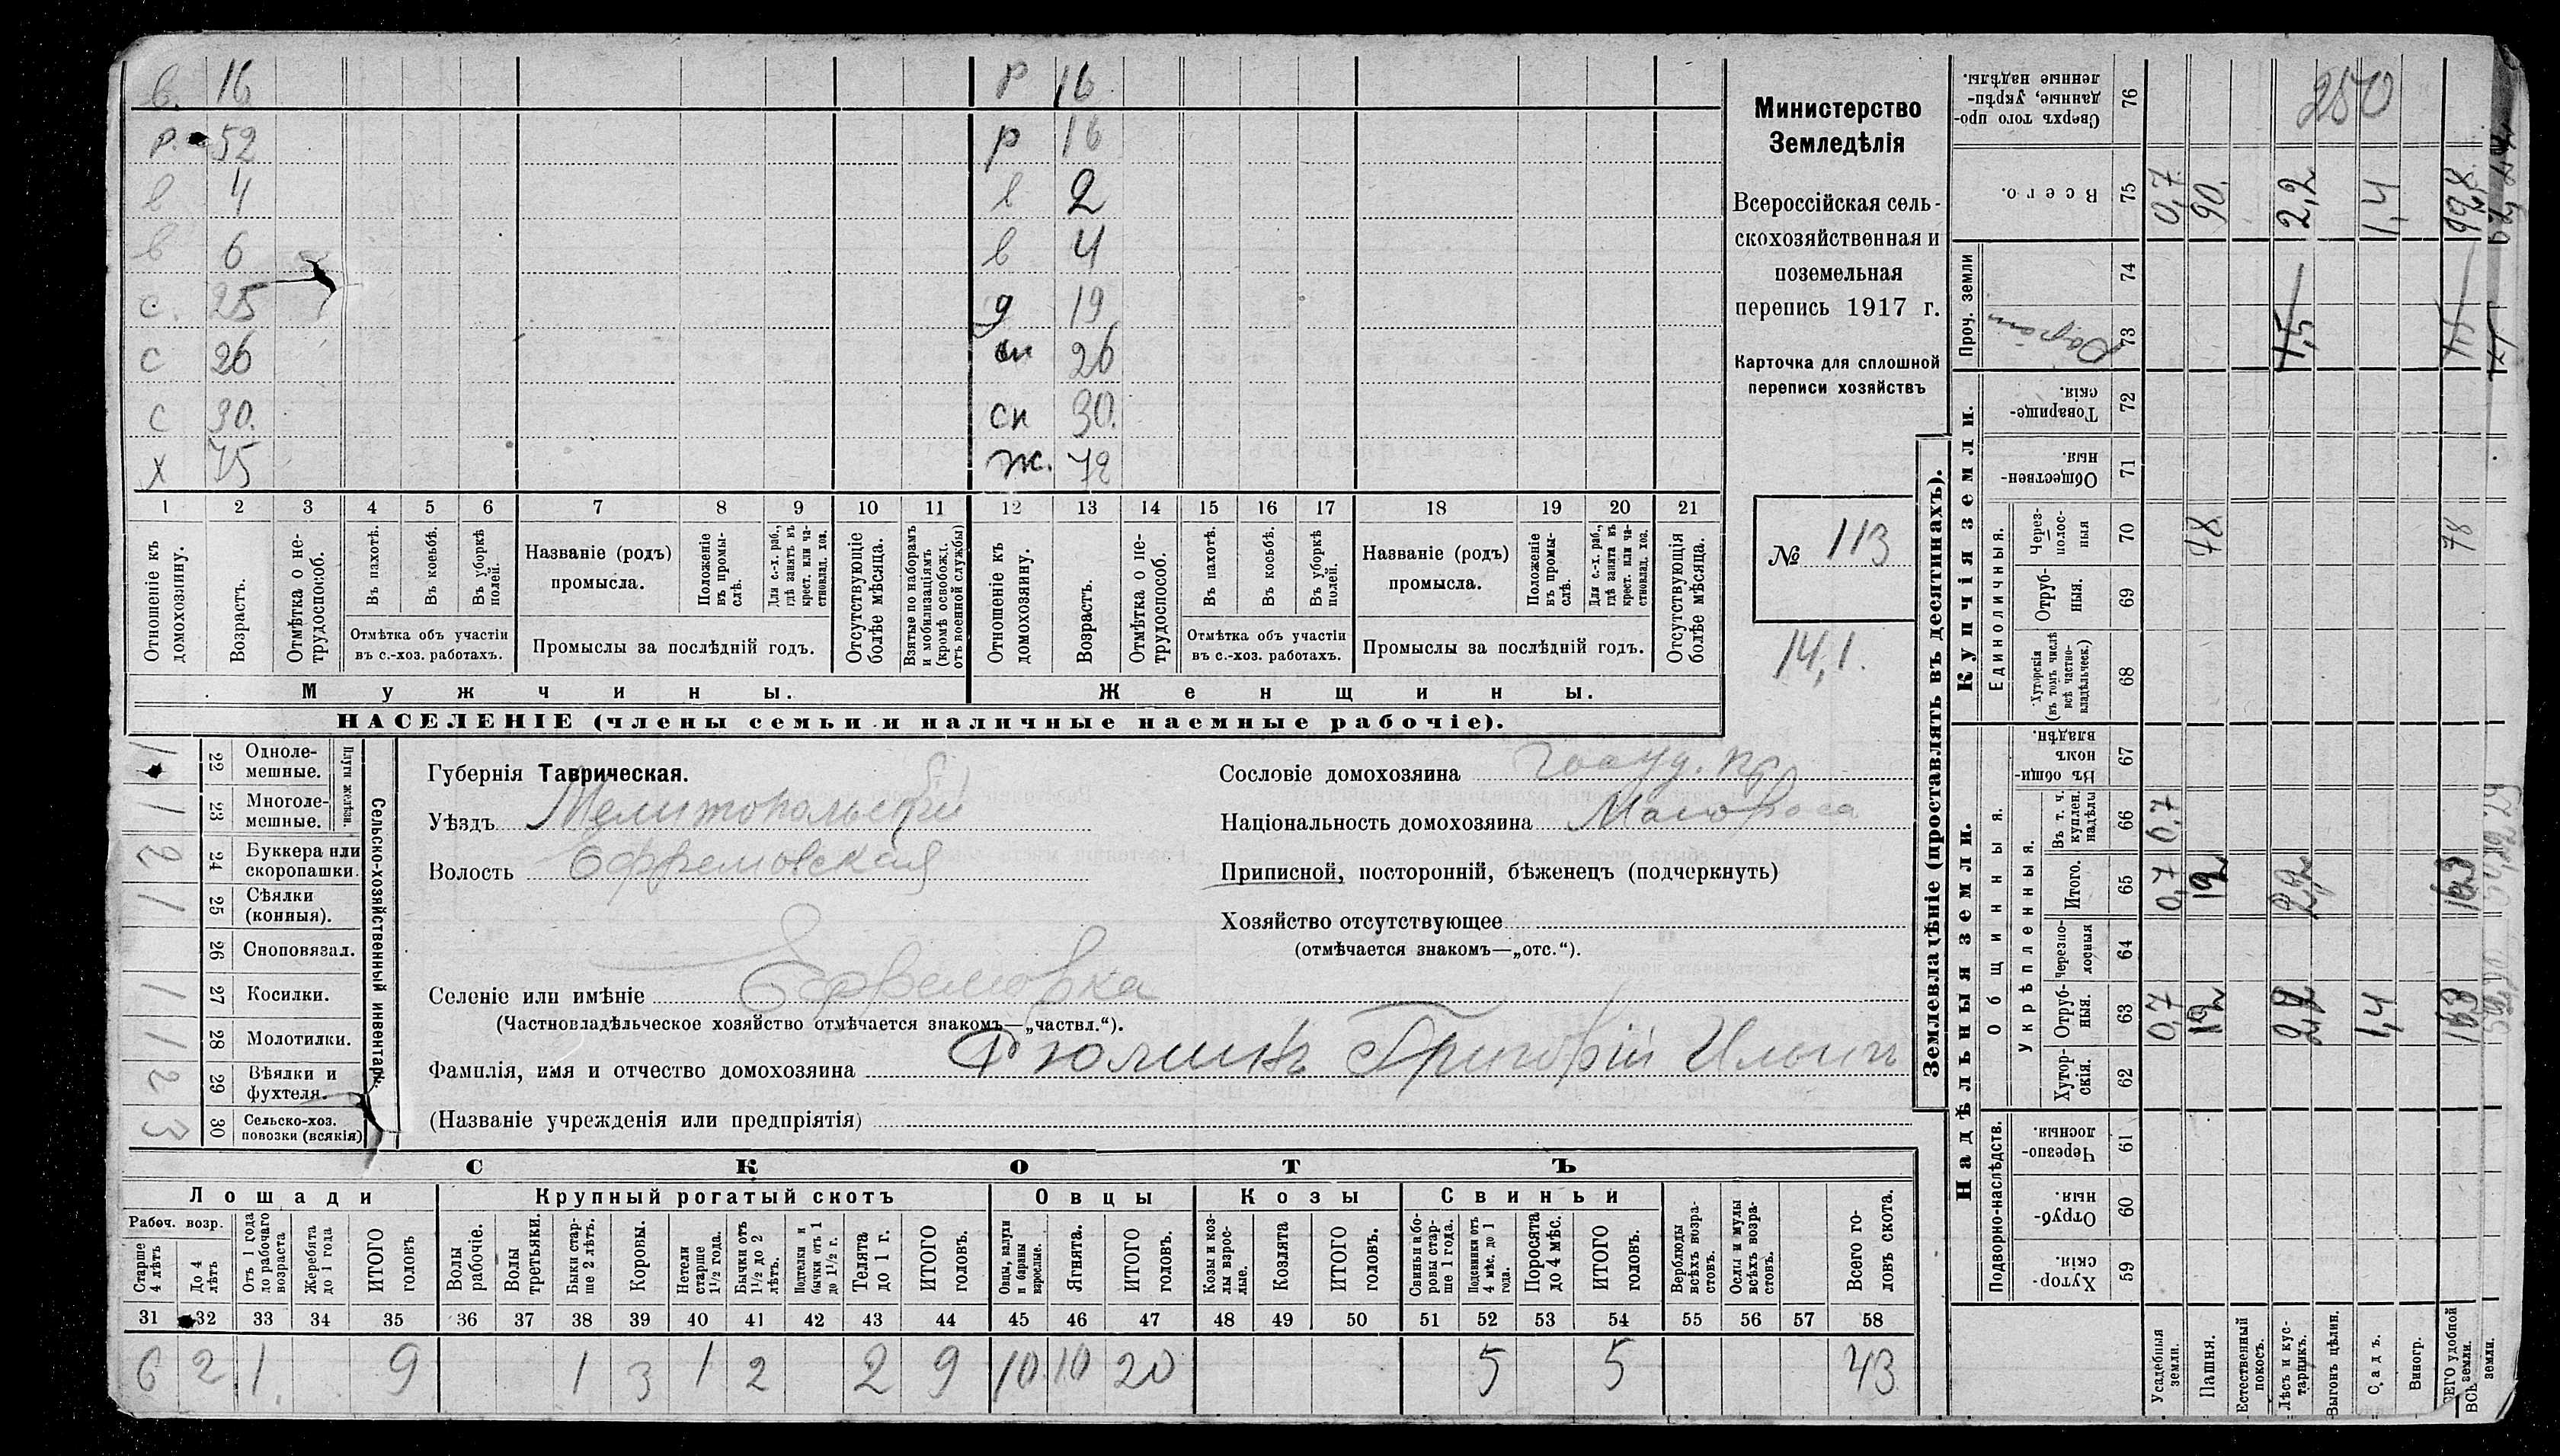 в. 16 р 16
р. 52 р 16
в 4 в 2
в 6 в 4
с. 25 д 19
с 26 сн 26
с 30. сн 30.
х 75 ж. 72
1 2 3 4 5 6 7 8 9 10 11 12 13 14 15 16 17 18 19 20 21
Отношеніе къ домохозяину.
Возрастъ.
Отмѣтка о не-трудоспособ.
Въ пахотѣ.
Въ косьбѣ.
Въ уборкѣ полей.
Отмѣтка объ участіи
въ с.-хоз. работахъ.
Названіе (родъ)
промысла.
Положеніе въ промы-слѣ.
Для с.-х. раб., гдѣ занятъ въ крест. или ча-стновлад. хоз.
Промыслы за послѣдній годъ.
Отсутствующіе болѣе мѣсяца.
Взятые по наборамъ и мобилизаціямъ (кромѣ освобожд. отъ военной службы)
Отношеніе къ домохозяину.
Возрастъ.
Отмѣтка о не-трудоспособ.
Въ пахотѣ.
Въ косьбѣ.
Въ уборкѣ полей.
Отмѣтка объ участіи
въ с.-хоз. работахъ.
Названіе (родъ)
промысла.
Положеніе въ промы-слѣ.
Для с.-х. раб., гдѣ занята въ крест. или ча-стновлад. хоз.
Промыслы за послѣдній годъ.
Отсутствующія болѣе мѣсяца.
Мужчины. Женщины.
НАСЕЛЕНІЕ (члены семьи и наличные наемные рабочіе).
Министерство
Земледѣлія
Всероссійская сель-
скохозяйственная и
поземельная
перепись 1917 г.
Карточка для сплошной
переписи хозяйствъ
№ 113
14,1.
Сельско-хозяйственный инвентарь.
Плуги желѣзн.
1 22 Одноле-мешные.
1 23 Многоле-мешные.
2 24 Буккера или скоропашки.
1 25 Сѣялки (конныя).
26 Сноповязал.
1 27 Косилки.
1 28 Молотилки.
2 29 Вѣялки и фухтеля.
3 30 Сельско-хоз. повозки (всякія)
Губернія Таврическая.
Уѣздъ Мелитопольскій
Волость Ефремовская
Селеніе или имѣніе Ефремовка
(Частновладѣльческое хозяйство отмѣчается знакомъ—„частвл.“).
Фамилія, имя и отчество домохозяина Григорій Ильич
(Названіе учрежденія или предпріятія)
Сословіе домохозяина
Національность домохозяина Малоросса
Приписной, посторонній, бѣженецъ (подчеркнуть)
Хозяйство отсутствующее
(отмѣчается знакомъ—„отс.“).
СКОТЪ
Лошади Крупный рогатый скотъ Овцы Козы Свиньи
Рабоч. возр.
Старше 4 лѣтъ
До 4 лѣтъ
Отъ 1 года до рабочаго возраста
Жеребята до 1 года
ИТОГО головъ
Волы рабочіе.
Волы третьяки.
Быки стар-ше 2 лѣтъ.
Коровы.
Нетели старше 1½ года.
Бычки отъ 1½ до 2 лѣтъ.
Подтелки и бычки отъ 1 до 1½ г.
Телята до 1 г.
ИТОГО головъ.
Овцы, валухи и бараны взрослые.
Ягнята.
ИТОГО головъ.
Козы и коз-лы взрос-лые.
Козлята
ИТОГО головъ.
Свиньи и бо-ровы стар-ше 1 года.
Подсвинки отъ 4 мѣс. до 1 года.
Поросята до 4 мѣс.
ИТОГО головъ.
Верблюды всѣхъ возра-стовъ.
Ослы и мулы всѣхъ возра-стовъ.
Всего го-ловъ скота.
31 32 33 34 35 36 37 38 39 40 41 42 43 44 45 46 47 48 49 50 51 52 53 54 55 56 57 58
6 2 1. 9 1 3 1 2 2 9 10 10 20 5 5 43
Землевладѣніе (проставлять въ десятинахъ).
Купчія земли.
Надѣльныя земли.
Сверхъ того про-данные, укрѣп-ленные надѣлы. 76 250
Всего. 75 0,7 90. 2,2 1,4
Проч. земли
74
73
Товарище-скія 72
Обществен-ныя. 71
Единоличныя.
Черезполос-ныя 70 78 78
Отруб-ныя. 69
Хуторскія (въ томъ числѣ всѣ частно-владѣльческ.) 68
Общинныя.
Въ общин-номъ владѣн. 67
Укрѣпленныя.
Въ т. ч. куплен. надѣлы 66 0,7
Итого. 65 0,7 12 2,2
Черезпо-лосныя 64
Отруб-ныя. 63 0,7 12 1,4
Хутор-скія. 62
Подворно-наслѣдств.
Черезпо-лосныя. 61
Отруб-ныя. 60
Хутор-скія. 59
Усадебныя земли.
Пашня.
Естественный покосъ.
Лѣсъ и кус-тарникъ.
Выгонъ цѣлин.
Садъ.
Виногр.
ВСЕГО удобной земли.
земли.